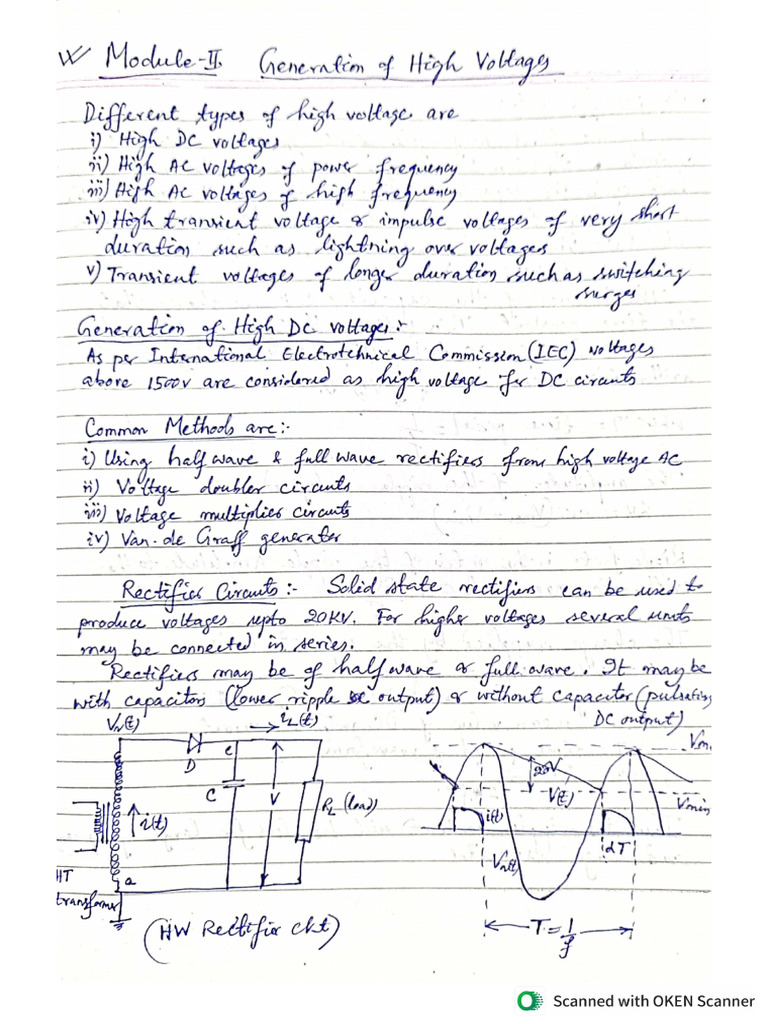 Module-II. Generation of High Voltages
Different types of high voltage are
i) High DC voltages
ii) High AC voltages of power frequency
iii) High AC voltages of high frequency
iv) High transient voltage & impulse voltages of very short
duration such as lightning over voltages
v) Transient voltages of longer duration such as switching
surges
Generation of High Dc voltages:-
As per International Electrotechnical Commission (IEC) voltages
above 1500v are considered as high voltage for DC circuits
Common Methods are:-
i) Using half wave & full wave rectifiers from high voltage AC
ii) Voltage doubler circuits
iii) Voltage multiplier circuits
iv) Van-de Graff generator
Rectifier Circuits:- Solid state rectifiers can be used to
produce voltages upto 20KV. For higher voltages several units
may be connected in series.
Rectifiers may be of half wave or full wave. It may be
with capacitors (lower ripple output) or without capacitor (pulsating
DC output)
i_L(t)
D
C
V
R_L (load)
i(t)
a
HT
transformer
(HW Rectifier ckt)
2δV
V(t)
Vmin
i(t)
αT
T = 1/f
Scanned with OKEN Scanner